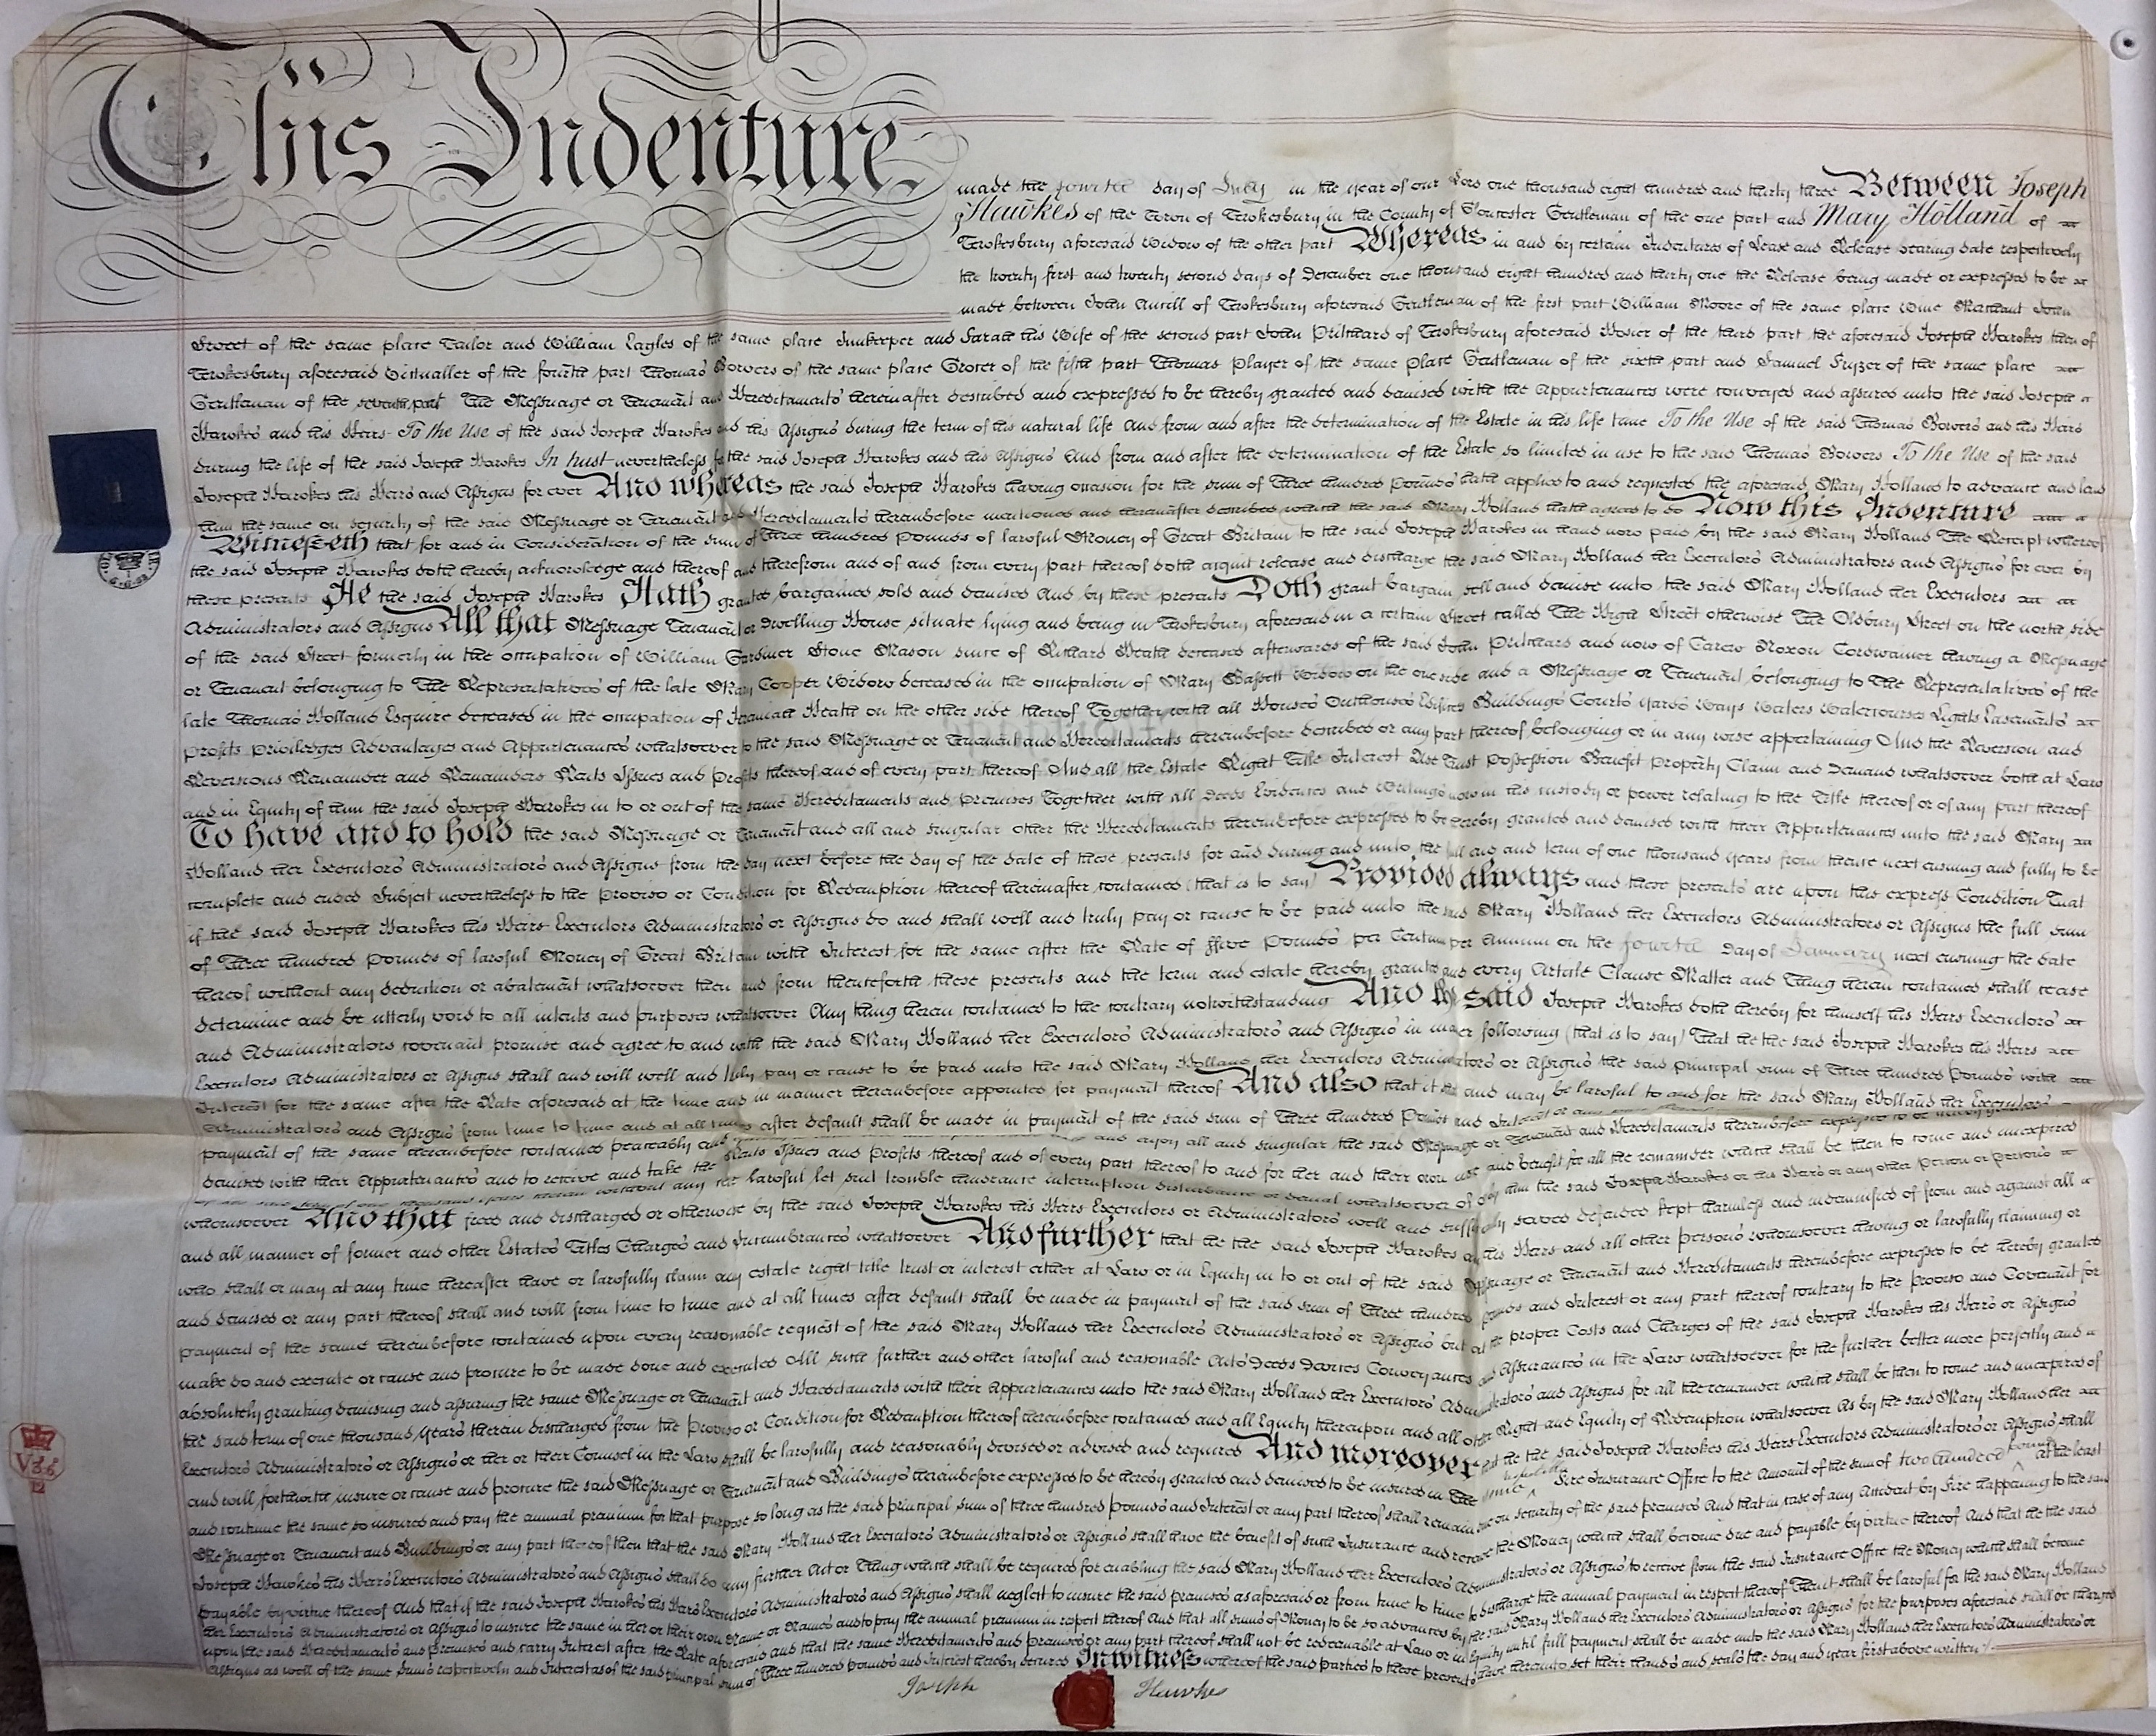 This Indenture
made the fourth day of July in the year of our Lord one thousand eight hundred and thirty three Between Joseph
Hawkes of the Town of Tewkesbury in the County of Gloucester Gentleman of the one part and Mary Holland of
Tewkesbury aforesaid Widow of the other part Whereas in and by certain Indentures of Lease and Release bearing date respectively
the twenty first and twenty second days of December one thousand eight hundred and thirty one the Release being made or expressed to be
made between John Avrill of Tewkesbury aforesaid Gentleman of the first part William Moore of the same place Wine Merchant John
of the same place Tailor and William Eagles of the same place Innkeeper and Sarah his Wife of the second part John Pritchard of Tewkesbury aforesaid Hosier of the third part the aforesaid Joseph Hawkes then of
Tewkesbury aforesaid Victualler of the fourth part Thomas Bowers of the same place Grocer of the fifth part Thomas Player of the same place Gentleman of the sixth part and Samuel Fryzer of the same place
Gentleman of the seventh part The Messuage or Tenement and Hereditaments hereinafter described and expressed to be hereby granted and demised with the Appurtenances were conveyed and assured unto the said Joseph
Hawkes and his Heirs To the Use of the said Joseph Hawkes and his Assigns during the term of his natural life And from and after the determination of the Estate in his life time To the Use of the said Thomas Bowers and his Heirs
during the life of the said Joseph Hawkes In trust nevertheless for the said Joseph Hawkes and his Assigns And from and after the determination of the Estate so limited in use to the said Thomas Bowers To the Use of the said
Joseph Hawkes his Heirs and Assigns for ever And whereas the said Joseph Hawkes having occasion for the sum of Three hundred Pounds hath applied to and requested the aforesaid Mary Holland to advance and lend
him the same on security of the said Messuage or Tenement and Hereditaments hereinbefore mentioned and hereinafter described which the said Mary Holland hath agreed to do Now this Indenture
Witnesseth that for and in Consideration of the sum of Three hundred Pounds of lawful Money of Great Britain to the said Joseph Hawkes in hand now paid by the said Mary Holland The Receipt whereof
the said Joseph Hawkes doth hereby acknowledge and thereof and therefrom and of and from every part thereof doth acquit release and discharge the said Mary Holland her Executors Administrators and Assigns for ever by
these presents He the said Joseph Hawkes Hath granted bargained sold and demised And by these presents Doth grant bargain sell and demise unto the said Mary Holland her Executors
Administrators and Assigns All that Messuage Tenement or Dwelling House situate lying and being in Tewkesbury aforesaid in a certain Street called The High Street otherwise The Oldbury Street on the north side
of the said Street formerly in the occupation of William Gardner Stone Mason since of Richard Heath deceased afterwards of the said John Pritchard and now of Carew Moxon Cordwainer having a Messuage
or Tenement belonging to The Representatives of the late Mary Cooper Widow deceased in the occupation of Mary Bassett Widow on the one side and a Messuage or Tenement belonging to The Representatives of the
late Thomas Holland Esquire deceased in the occupation of Jeremiah Heath on the other side thereof Together with all Houses Outhouses Edifices Buildings Courts Yards Ways Waters Watercourses Lights Easements
profits privileges Advantages and Appurtenances whatsoever to the said Messuage or Tenement and Hereditaments hereinbefore described or any part thereof belonging or in any wise appertaining And the Reversion and
Reversions Remainder and Remainders Rents Issues and Profits thereof and of every part thereof And all the Estate Right Title Interest Use Trust Possession Benefit Property Claim and Demand whatsoever both at Law
and in Equity of him the said Joseph Hawkes in to or out of the same Hereditaments and Premises Together with all Deeds Evidences and Writings now in his custody or power relating to the Title thereof or of any part thereof
To have and to hold the said Messuage or Tenement and all and singular other the Hereditaments hereinbefore expressed to be hereby granted and demised with their Appurtenances unto the said Mary
Holland her Executors Administrators and Assigns from the day next before the day of the date of these presents for and during and unto the full end and term of one thousand years from thence next ensuing and fully to be
complete and ended Subject nevertheless to the Proviso or Condition for Redemption thereof hereinafter contained (that is to say) Provided always and these presents are upon this express Condition That
if the said Joseph Hawkes his Heirs Executors Administrators or Assigns do and shall well and truly pay or cause to be paid unto the said Mary Holland her Executors Administrators or Assigns the full sum
of Three hundred Pounds of lawful Money of Great Britain with Interest for the same after the Rate of ffive Pounds per Centum per Annum on the fourth Day of January next ensuing the date
hereof without any deduction or abatement whatsoever then and from thenceforth these presents and the term and estate hereby granted and every Article Clause Matter and Thing herein contained shall cease
determine and be utterly void to all intents and purposes whatsoever Any thing herein contained to the contrary notwithstanding And the said Joseph Hawkes doth hereby for himself his Heirs Executors
and Administrators covenant promise and agree to and with the said Mary Holland her Executors Administrators and Assigns in manner following (that is to say) That he the said Joseph Hawkes his Heirs
Executors Administrators or Assigns shall and will well and truly pay or cause to be paid unto the said Mary Holland her Executors Administrators or Assigns the said principal sum of Three hundred Pounds with
Interest for the same after the Rate aforesaid at the time and in manner hereinbefore appointed for payment thereof And also that it shall and may be lawful to and for the said Mary Holland her Executors
Administrators and Assigns from time to time and at all times after default shall be made in payment of the said sum of Three hundred Pounds and Interest or any part thereof
payment of the same hereinbefore contained peaceably and and enjoy all and singular the said Messuage or Tenement and Hereditaments hereinbefore expressed to be hereby granted
demised with their Appurtenances and to receive and take the Rents Issues and Profits thereof and of every part thereof to and for her and their own use and benefit for all the remainder which shall be then to come and unexpired
of the said term of one thousand years therein without any the lawful let suit trouble hindrance interruption disturbance or denial whatsoever of or by him the said Joseph Hawkes or his Heirs or any other Person or Persons
whomsoever And that freed and discharged or otherwise by the said Joseph Hawkes his Heirs Executors or Administrators well and sufficiently saved defended kept harmless and indemnified of from and against all
and all manner of former and other Estates Titles Charges and Incumbrances whatsoever And further that he the said Joseph Hawkes and his Heirs and all other persons whomsoever having or lawfully claiming or
who shall or may at any time hereafter have or lawfully claim any estate right title trust or interest either at Law or in Equity in to or out of the said Messuage or Tenement and Hereditaments hereinbefore expressed to be hereby granted
and demised or any part thereof shall and will from time to time and at all times after default shall be made in payment of the said sum of Three hundred Pounds and Interest or any part thereof contrary to the Proviso and Covenant for
payment of the same hereinbefore contained upon every reasonable request of the said Mary Holland her Executors Administrators or Assigns but at the proper Costs and Charges of the said Joseph Hawkes his Heirs or Assigns
make do and execute or cause and procure to be made done and executed All such further and other lawful and reasonable Acts Deeds Devices Conveyances and Assurances in the Law whatsoever for the further better more perfectly and
absolutely granting demising and assuring the same Messuage or Tenement and Hereditaments with their Appurtenances unto the said Mary Holland her Executors Administrators and Assigns for all the remainder which shall be then to come and unexpired of
the said term of one thousand years therein discharged from the Proviso or Condition for Redemption thereof hereinbefore contained and all Equity thereupon and all other Right and Equity of Redemption whatsoever As by the said Mary Holland her
Executors Administrators or Assigns or her or their Counsel in the Law shall be lawfully and reasonably devised or advised and required And moreover that he the said Joseph Hawkes his Heirs Executors Administrators or Assigns shall
and will forthwith insure or cause and procure the said Messuage or Tenement and Buildings hereinbefore expressed to be hereby granted and demised to be insured in The Fire Insurance Office to the Amount of the sum of two hundred pounds at the least
and continue the same so insured and pay the annual premium for that purpose so long as the said principal sum of three hundred pounds and Interest or any part thereof shall remain due on security of the said premises And that in case of any Accident by Fire happening to the said
Messuage or Tenement and Buildings or any part thereof then that the said Mary Holland her Executors Administrators or Assigns shall have the benefit of such Insurance and receive the Money which shall become due and payable by virtue thereof And that he the said
Joseph Hawkes his Heirs Executors Administrators and Assigns shall do any further Act or Thing which shall be required for enabling the said Mary Holland her Executors Administrators or Assigns to receive from the said Insurance Office the Money which shall become
payable by virtue thereof And that if the said Joseph Hawkes his Heirs Executors Administrators and Assigns shall neglect to insure the said premises as aforesaid or from time to time to discharge the annual payment in respect thereof Then it shall be lawful for the said Mary Holland
her Executors Administrators or Assigns to insure the same in her or their own Name or Names and to pay the annual premium in respect thereof And that all sums of Money to be so advanced by the said Mary Holland her Executors Administrators or Assigns for the purposes aforesaid shall be charged
upon the said Hereditaments and premises and carry Interest after the Rate aforesaid and that the same Hereditaments and premises or any part thereof shall not be redeemable at Law or in Equity until full payment shall be made unto the said Mary Holland her Executors Administrators or
Assigns as well of the same Sums respectively and Interest as of the said principal sum of Three hundred pounds and Interest hereby secured In witness whereof the said parties to these presents have hereunto set their hands and seals the day and year first above written
Joseph Hawkes